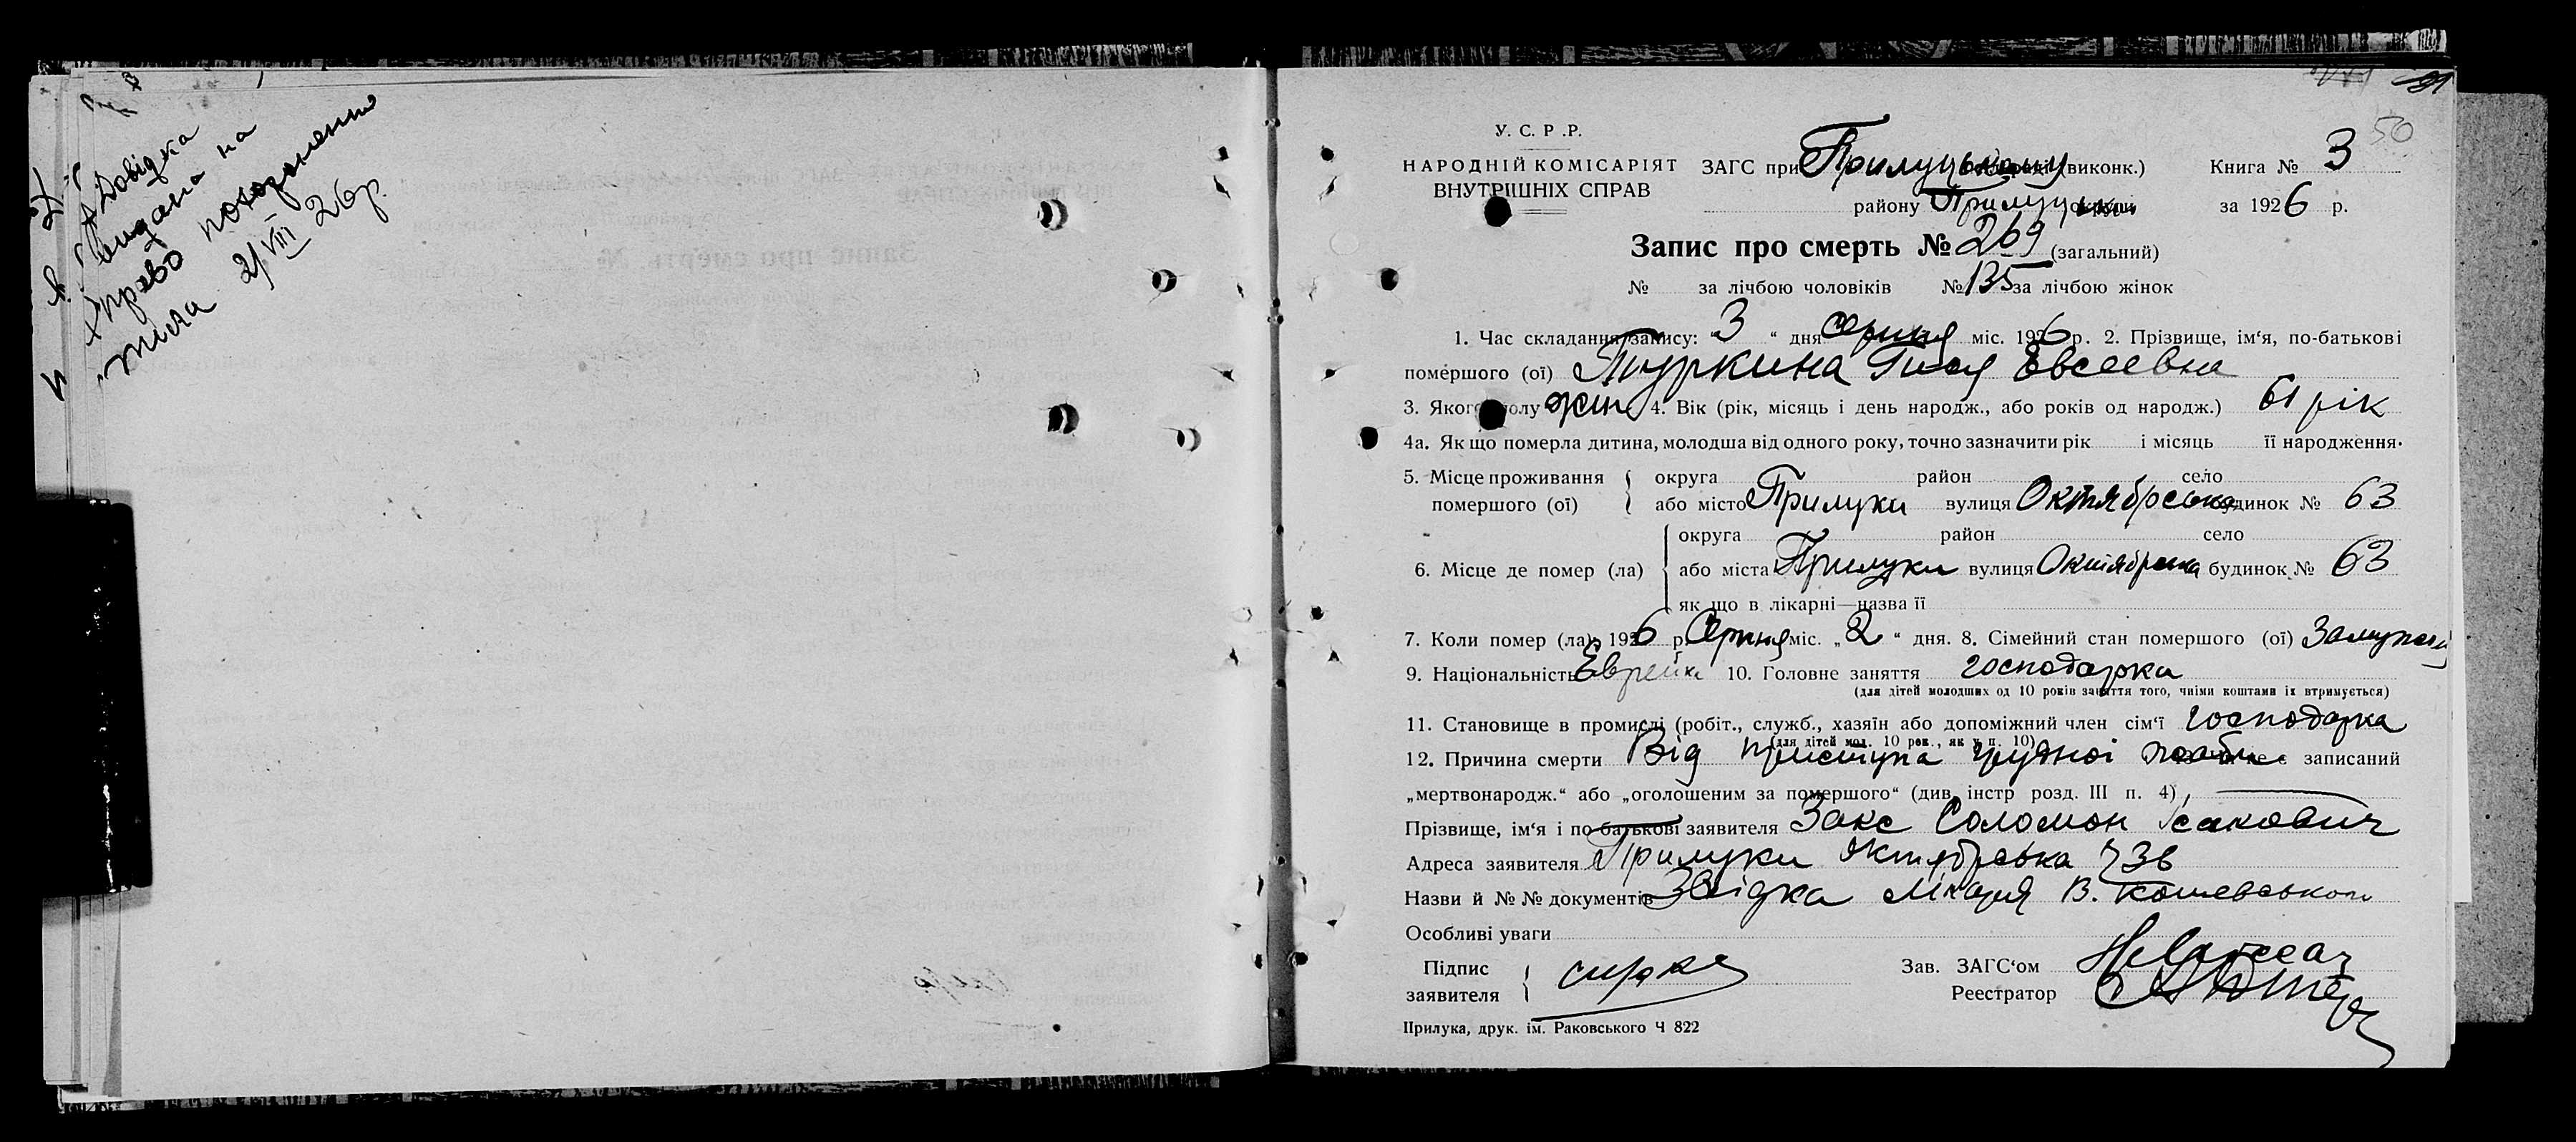 Довідка
видана на
право похоронення
тіла 2/VIII 26 р.
50
У. С. Р .Р.
НАРОДНІЙ КОМІСАРІЯТ
ВНУТРІШНІХ СПРАВ
ЗАГС при Прилуцькому виконк.)
Книга № 3
району Прилуцьк
за 1926 р.
Запис про смерть № 269 (загальний)
№ за лічбою чоловіків № 135 за лічбою жінок
1. Час складання запису: „3“ дня серпня міс. 1926 р. 2. Прізвище, ім‘я, по-батькові
помершого (ої) Туркина Гися Евсеевна
3. Якого полу жін 4. Вік (рік, місяць і день народж., або років од народж.) 61 рік
4а. Як що померла дитина, молодша від одного року, точно зазначити рік і місяць її народження.
5. Місце проживання помершого (ої) { округа район село
або місто Прилуки вулиця Октябрська будинок № 63
6. Місце де помер (ла) { округа район село
або міста Прилуки вулиця Октябрська будинок № 63
як що в лікарні—назва її
7. Коли помер (ла) 1926 р. Серпня міс. „2“ дня. 8. Сімейний стан помершого (ої) Замужня
9. Національність Еврейка 10. Головне заняття господарка
(для дітей молодших од 10 років заняття того, чиїми коштами їх втримується)
11. Становище в промислі (робіт., служб., хазяїн або допоміжний член сім‘ї господарка
(для дітей мол. 10 рок., як у п. 10)
12. Причина смерти Від приступа грудної жаби не є записаний
„мертвонародж.“ або „оголошеним за помершого“ (див. інстр розд. III п. 4)
Прізвище, ім‘я і по-батькові заявителя Закс Соломон Ісакович
Адреса заявителя Прилуки Октябрська
Назви й №№ документів Звідка Лікаря В. Кошевського
Особливі уваги
Підпис
заявителя
Зав. ЗАГС‘ом
Реестратор
Прилука, друк. ім. Раковського Ч 822